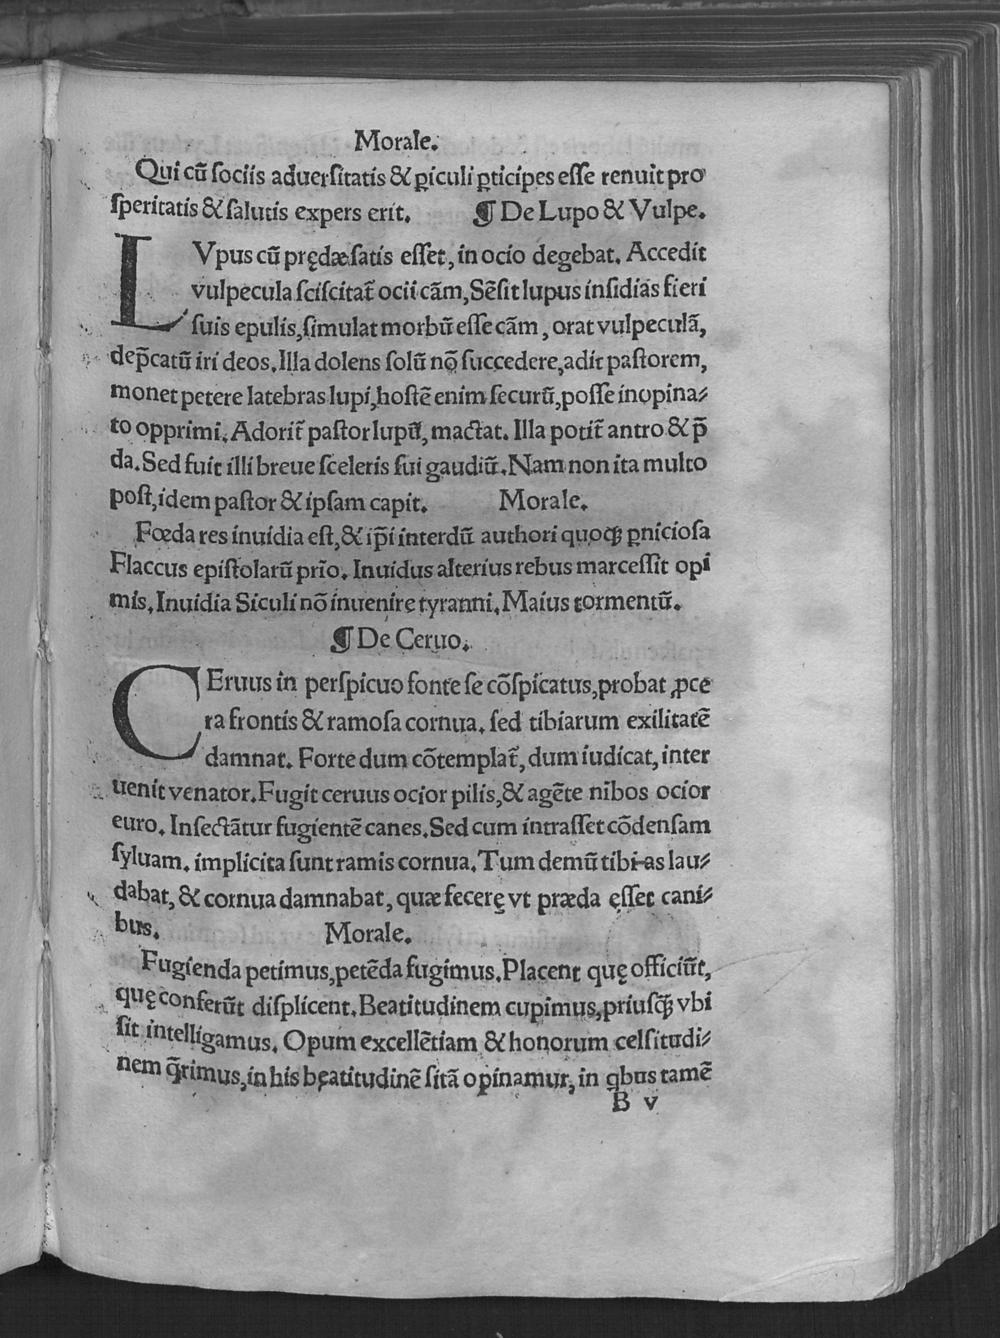 Morale.
Qui cū sociis aduersitatis & ꝑiculi ꝑticipes esse renuit pro
speritatis & salutis expers erit. ¶ De Lupo & Vulpe.
LVpus cū prędæ satis esset, in ocio degebat. Accedit
vulpecula sciscitat̄ ocii cām, Sēsit lupus insidias fieri
suis epulis, simulat morbū esse cām, orat vulpeculā,
dep̄catū iri deos. Illa dolens solū nō succedere, adit pastorem,
monet petere latebras lupi, hostē enim securū, posse inopina⸗
to opprimi. Adorit̄ pastor lupū, mactat. Illa potit̄ antro & p̄
da. Sed fuit illi breue sceleris sui gaudiū. Nam non ita multo
post, idem pastor & ipsam capit. Morale.
Fœda res inuidia est, & ip̄i interdū authori quoꝙ ꝑniciosa
Flaccus epistolarū prīo. Inuidus alterius rebus marcessit opi
mis, Inuidia Siculi nō inuenire tyranni, Maius tormentū.
¶ De Ceruo.
CEruus in perspicuo fonte se cōspicatus, probat ꝓce
ra frontis & ramosa cornua. sed tibiarum exilitatē
damnat. Forte dum cōtemplat̄, dum iudicat, inter
uenit venator. Fugit ceruus ocior pilis, & agēte nībos ocior
euro. Insectātur fugientē canes. Sed cum intrasset cōdensam
syluam. implicita sunt ramis cornua. Tum demū tibias lau⸗
dabat, & cornua damnabat, quæ fecerę vt præda ęsset cani⸗
bus. Morale.
Fugienda petimus, petēda fugimus. Placent quę officiūt,
quę conferūt displicent. Beatitudinem cupimus, priusꝙ̄ vbi
sit intelligamus. Opum excellētiam & honorum celsitudi⸗
nem q̄rimus, in his bęatitudinē sitā opinamur, in qbus tamē
B v